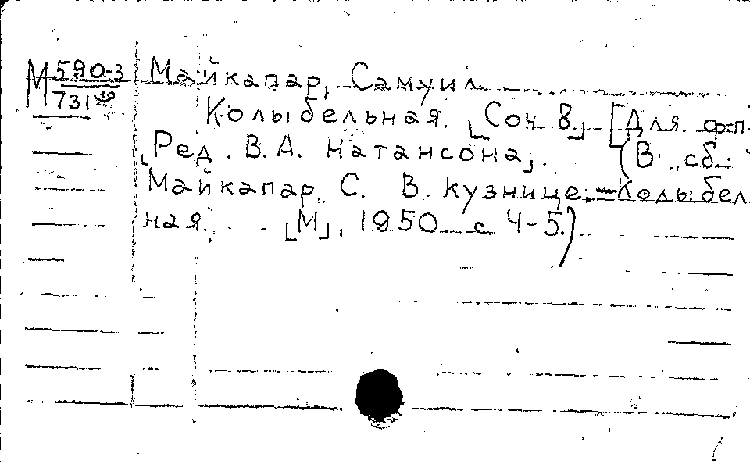 М 590-3
731
Майкапар, Самуил
Колыбельная. [Соч. 8.] [Для ф.-п.
[Ред. В.А. Натансона]. (В сб.:
Майкапар, С. В кузнице.—Колыбел
ная. [М], 1950 с 4-5.)